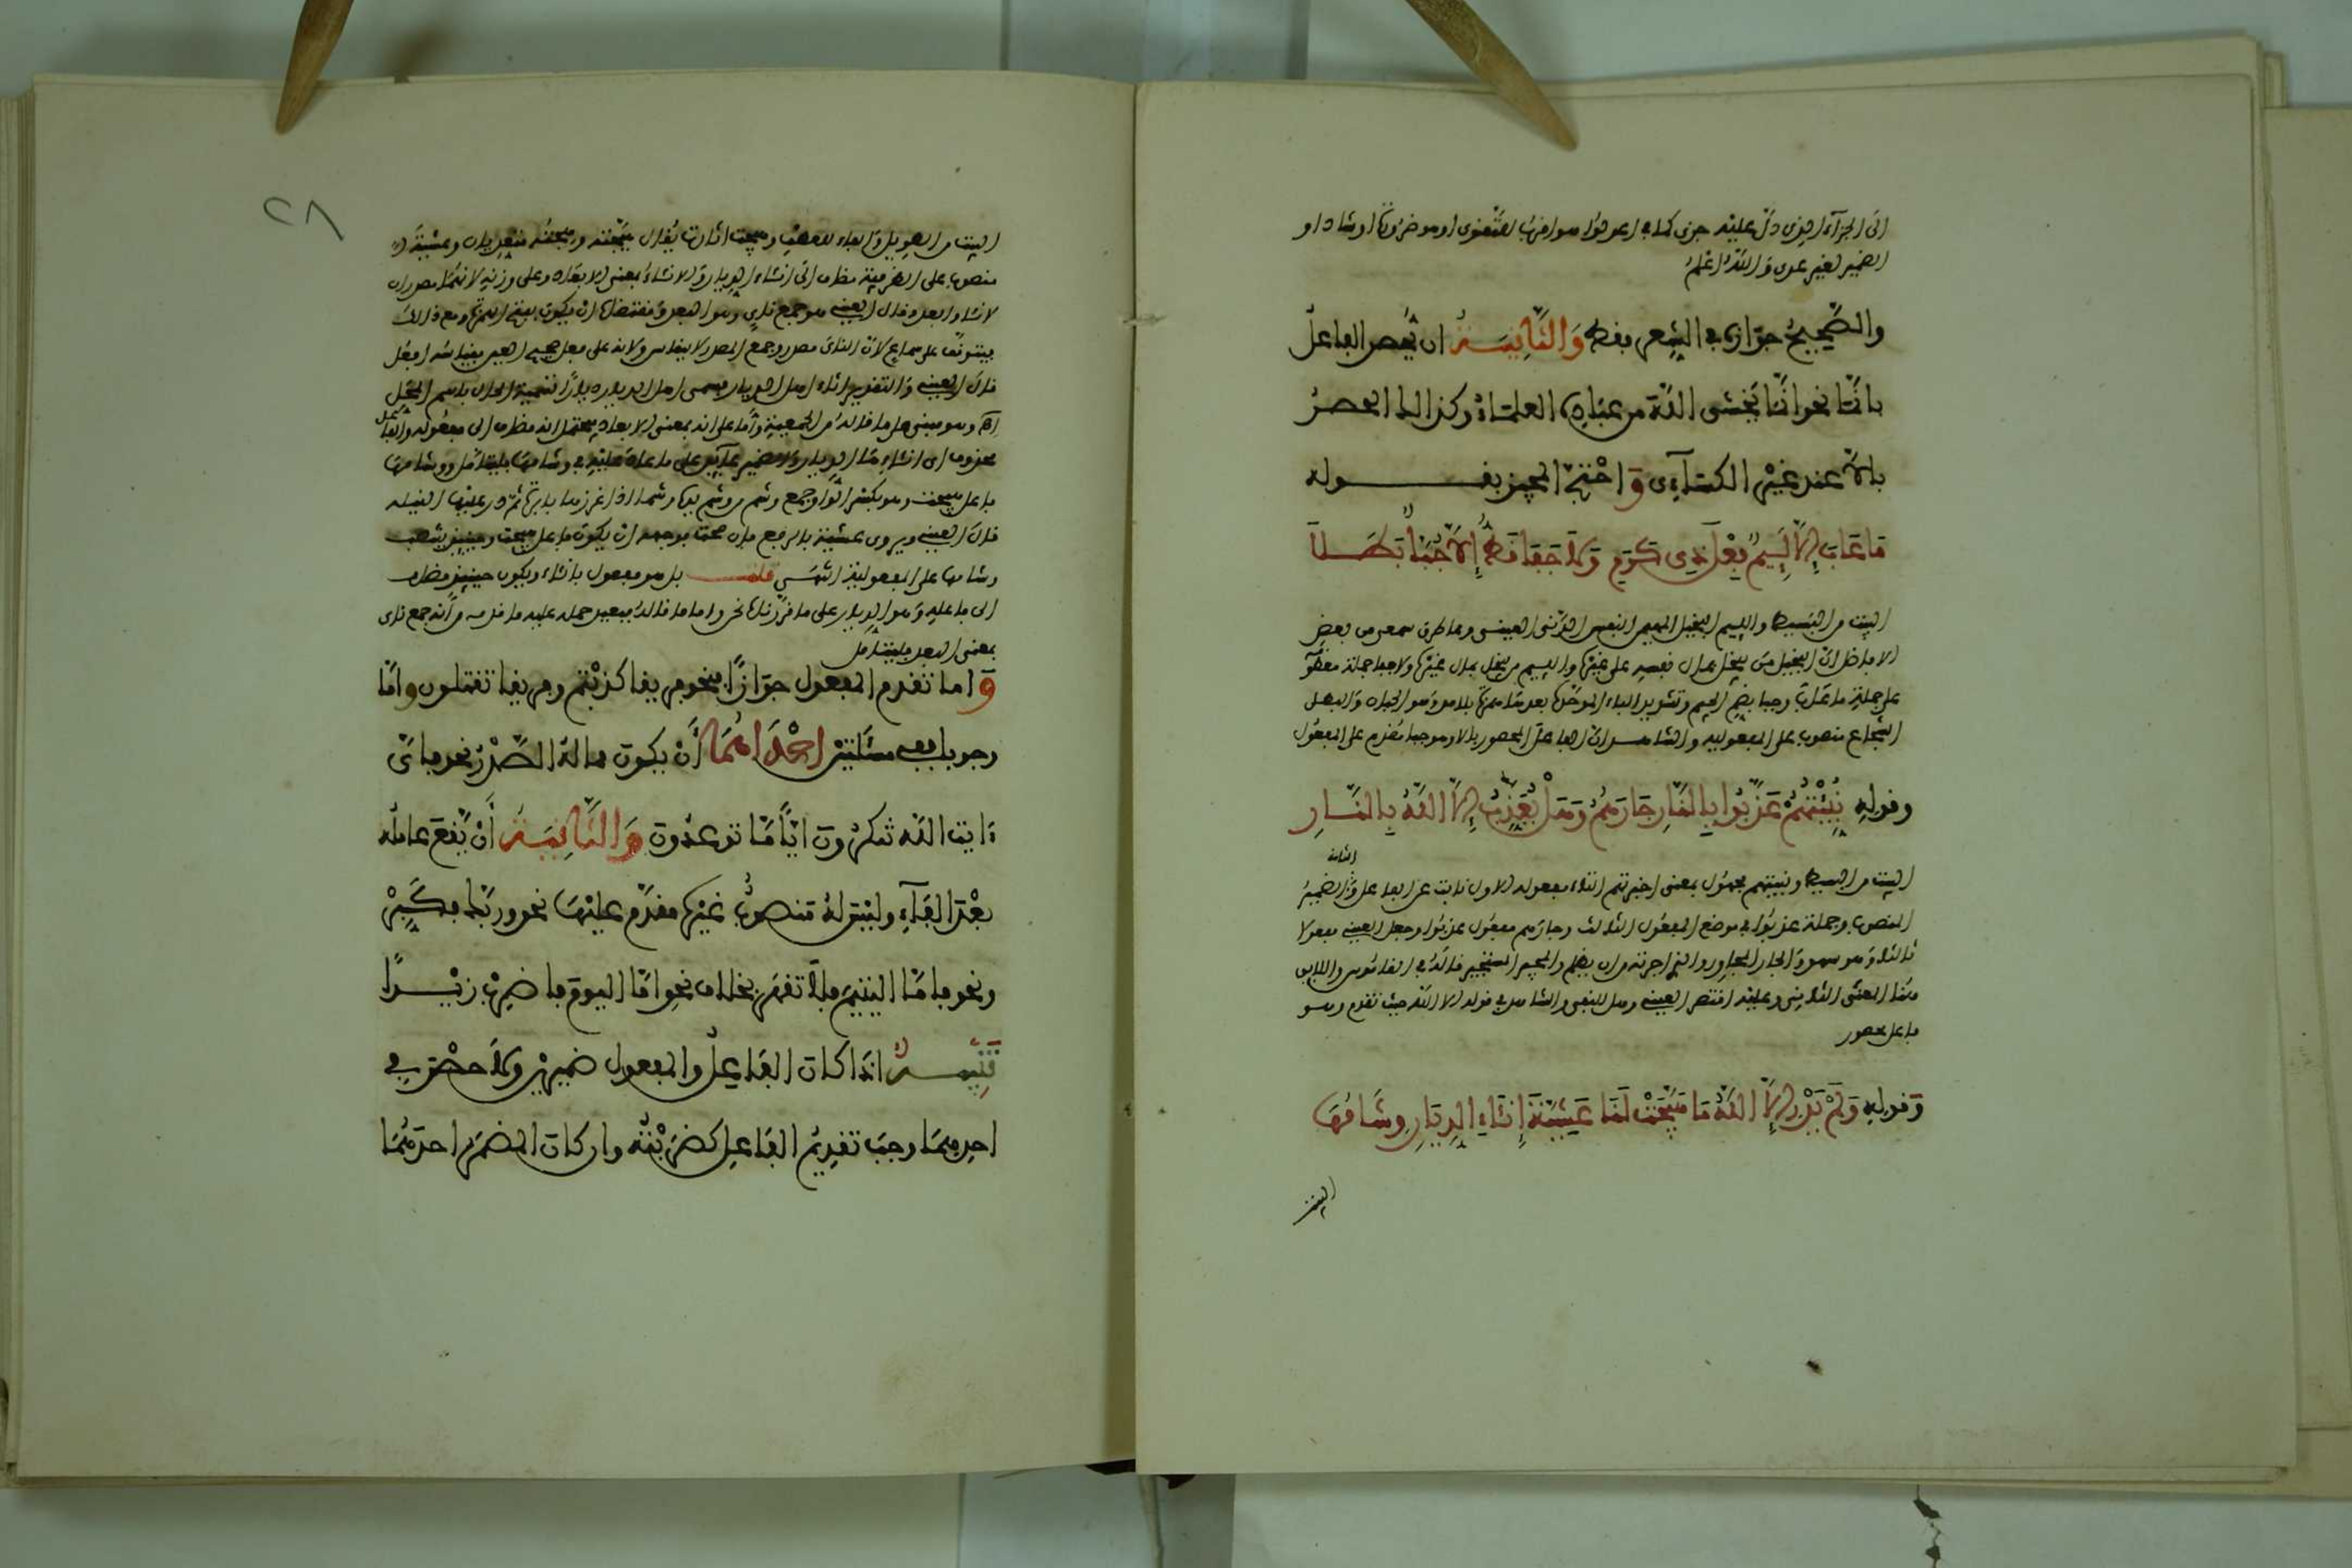 الى الجزاء الذي دل عليه جزى كما في اعدلوا هو اقرب للتقوى او هو ضرورة او شاذ او
الضمير لغير عدي والله اعلم
والصَّحِيحُ جوازه في الشِعر فقط وَالثَّانِيَـةُ ان يُحصر الفاعلُ
بانَّما نحو انَّما يخشى اللهَ من عباده العلماءُ وكذا الحصرُ
بالاَّ عند غيْر الكسَآءي وَاحْتجَّ المجيز بقـــوله
مَا عَابَ إِلاَّ لَئِيمٌ فِعْلَ ذِي كَرَمٍ وَلاَ جَفَا قَطُّ إِلاَّ جُبَّأٌ بَطَـلاَ
البيت من البسيط واللئيم البخيل المهين النفس الدنى العينى وعما طرق سمعى من بعض
الافاضل ان البخيل من يبخل بمال نفسه على غيره واللئيم من يبخل بمال غيره ولا جفا جملة معطو
على جملة ما عاب وجبا بضم الجيم وتشديد الباء الموحدة بعدها همزة بلا مد وهو الجبان والبطل
الشجاع منصوب على المفعولية والشاهد ان الفاعل المحصور بالا وهو جبا مقدم على المفعول
وقوله نُبِّئْتُهُمْ عَذَّبُوا بِالنَّارِ جَارَهُمُ وَهَلْ يُعَذِّبُ إِلاَّ اللهُ بِالنَّـارِ
الثانى
البيت من البسيط ونبئتهم مجهول بمعنى اخبرتهم التاء مفعوله الاول نابت عن الفاعل والضمير
المنصوب وجملة عذبوا في موضع المفعول الثالث وجارهم مفعول عذبوا وجعل العينى مفعولا
ثالثا وهو سهو والجار المجاور والذي اجرته من ان يظلم والمجير المستجير قاله في القاموس واللايق
هنا المعنى الثانى وعليه اقتصر العينى وهل للنفي والشاهد في قوله الا الله حيث تقدم وهو
فاعل محصور
وَقوله وَلَمْ يَدْرِ إِلاَّ اللهُ مَا هَيَّجَتْ لَنَا عَشِيَّةَ إِنْآءِ الدِيَارِ وشَامُهَا
البيت
٢٨
البيت من الطويل والفاء للعطف وهيجت اثارت يقال هيجته وهيجته متعديان وعشية
منصوب على الظرفية مضاف الى انئاء الديار والانئاء بمعنى الابعاد وعلى وزنه لانهما مصدران
لانئا وابعد وقال العينى هو جمع نأي وهو البعد ومقتضاه ان يكون بفتح الهمزة ومع ذالك
يتوقف على سماع لان الناى مصدر وجمع المصدر لا ينقاس ولانه على فعل صحيح العين بقياسه افعل
قال العينى والتقدير انئاء اهل الديار فسمى اهل الديار ديارا تسمية الحال باسم المحل
اه وهو مبنى على ما قاله من الجمعية واما على انه بمعنى الابعاد فيحتمل انه مضاف الى مفعوله والفاعل
محذوف اى انئاء هنا الديار والضمير عائد على ما عاد عليه في وشامها فليتامل ووشامها
فاعل هيجت وهو بكسر الواو جمع وشم من وشم يده وشما اذا غرزها بابرة ثم ذر عليها النيلـه
قال العينى ويروى عشية بالرفع فان صحت فوجهه ان يكون فاعل هيجت وحينئذ ينصب
وشامها على المفعولية انتهى قلـــت بل هو مفعول بانئاء ويكون حينئذ مضاف
الى فاعله وهو الديار على ما قررناه نحن واما ما قاله فيبعد حمله عليه ما قدمه من انه جمع ناي
بمعنى البعد فليتامل
وَاما تقدم المفعول جوَازًا فنحو فريقا كذبْتم وفريقا تقتلون وامَّا
وجوبا ففي مسْألتين احْدَاهُمَا أن يكون مما له الصَّدْرُ نحو فأي
ءايت الله تنكرون ايًّا مَّا تدعُون وَالثَّانِيَـةُ أَنْ يَّقعَ عامله
بعْدَ الفَآءِ وليْس لهُ منصوبٌ غيْره مقدَّم عليْها نحو وربَّك فكَبِّرْ
ونحو فامَّا اليتيمَ فلاَ تقهرْ بخلاف نحو امَّا اليومَ فاضربْ زيْـدًا
تَنْبِيـهٌ اذَا كان الفَاعِلُ والمفعول ضميريْن ولاَ حصْر في
احدهمَا وجبَ تقديمُ الفَاعِل كضربْتُه وان كان المضمَر احدَهُمَا